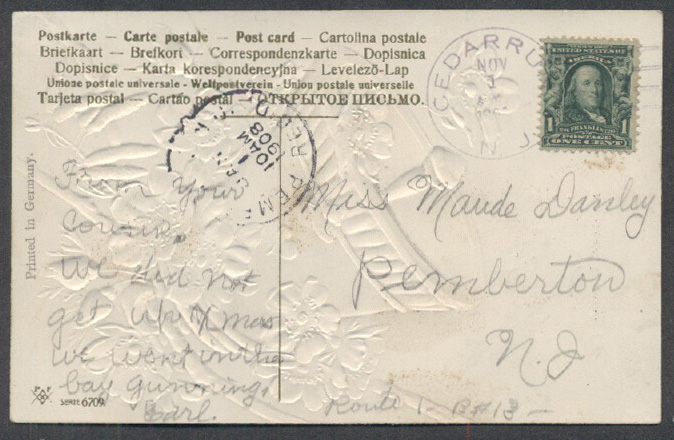 Postkarte — Carte postale — Post card — Cartolina postale
Briefkaart — Brefkort — Correspondenzkarte — Dopisnica
Dopisnice — Karta korespondencyjna — Levelező-Lap
Unione postale universale - Weltpostverein - Union postale universelle
Tarjeta postal — Cartao postal — ОТКРЫТОЕ ПИСЬМО.
CEDARRU
NOV
1
N. J.
UNITED STATES OF AMERICA
FRANKLIN
POSTAGE
1 ONE CENT 1
REM
REC'D
JAN
1
10AM
1908
Printed in Germany.
From Your
Cousin,
We did not
get up Xmas
we went in the
bay gunning,
Earl.
SERIE 6709
Miss Maude Danley
Pemberton
N. J
Route 1 - B# 13 -